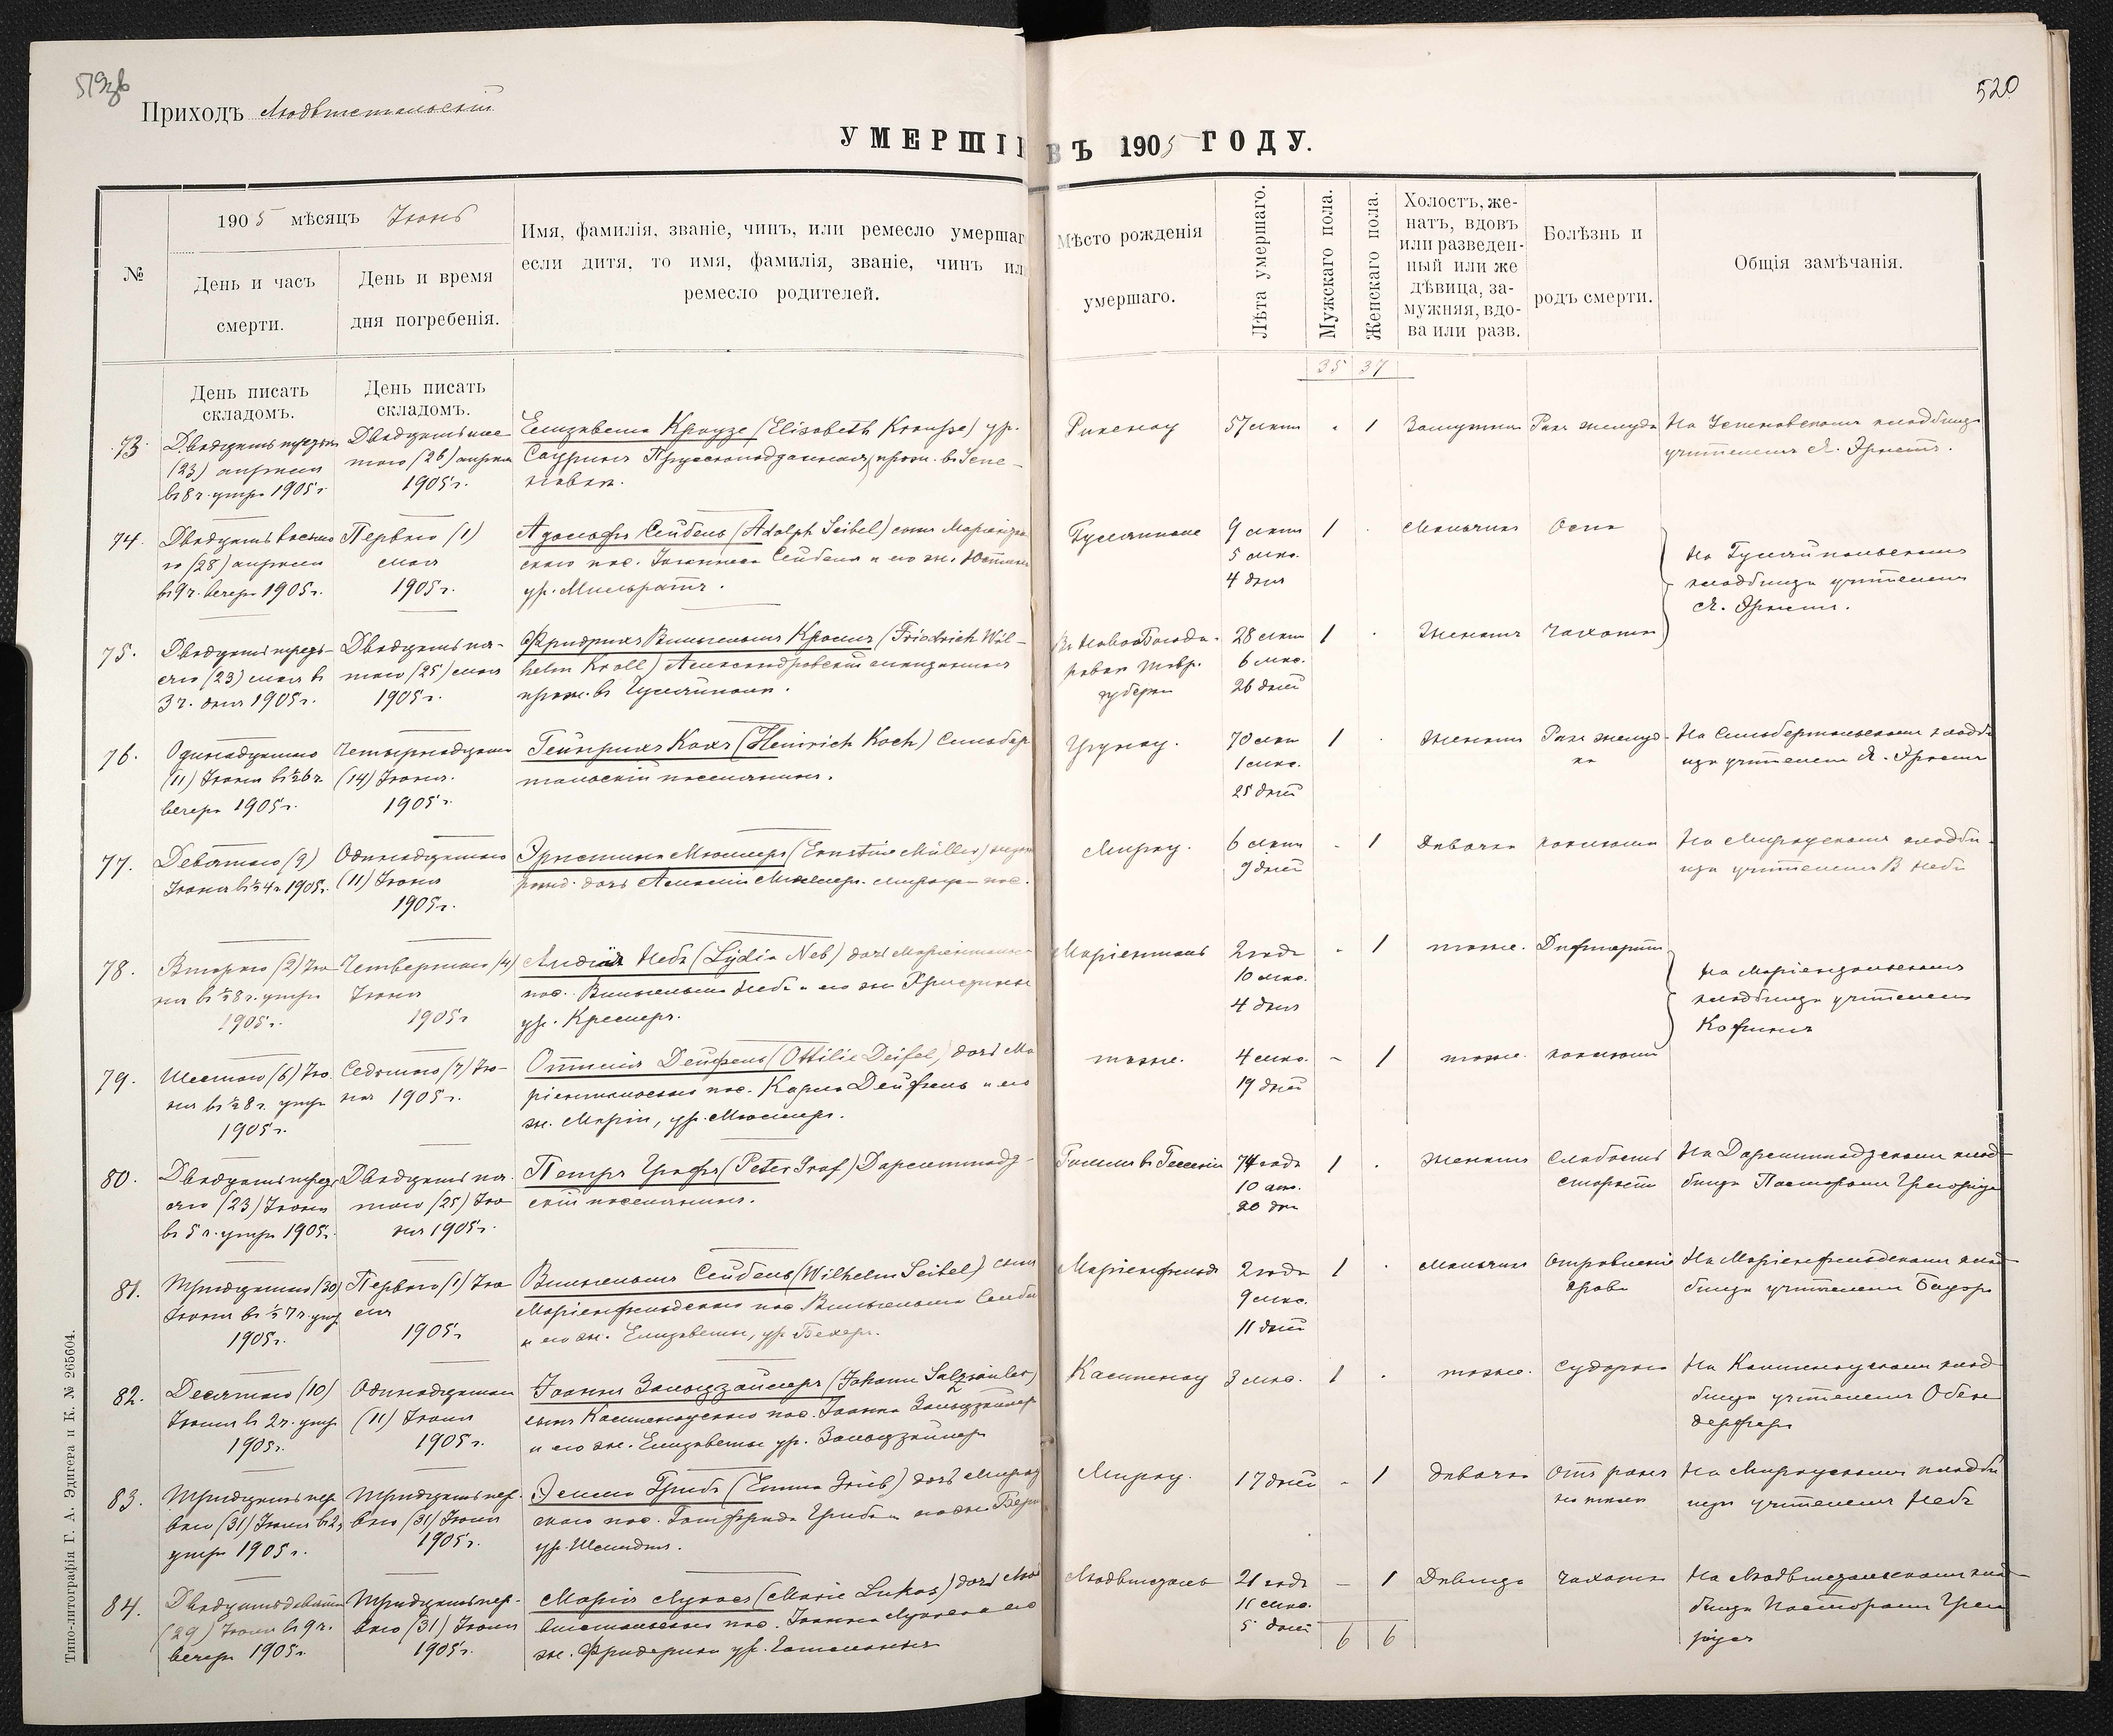 519об
520
Приходъ Людвигстальскій
УМЕРШІЕ ВЪ 1905 ГОДУ.
№
1905 мѣсяцъ Іюнь
День и часъ
смерти.
День и время
дня погребенія.
Имя, фамилія, званіе, чинъ, или ремесло умершаго
если дитя, то имя, фамилія, званіе, чинъ или
ремесло родителей.
Мѣсто рожденія
умершаго.
Лѣта умершаго.
Мужскаго пола.
Женскаго пола.
Холостъ, же-
натъ, вдовъ
или разведен-
ный или же
дѣвица, за-
мужняя, вдо-
ва или разв.
Болѣзнь и
родъ смерти.
Общія замѣчанія.
35 37
День писать
складомъ.
День писать
складомъ.
73.
Двадцать третьяго
(23) апрѣля
въ 8 ч. утра 1905 г.
Двадцать шес-
таго (26) апрѣля
1905 г.
Елизавета Краузе (Elisabeth Krauße) ур.
Сауринъ Прусскоподданная, прож. въ
57 лѣтъ - 1 Замужняя Ракъ желудка
кладбищѣ
учителемъ Я. Эрнстъ.
74.
Двадцать восьма-
го (28) апрѣля
въ 9 ч. вечера 1905 г.
Перваго (1)
мая
1905 г.
Адольфъ Сейбель (Adolph Seibel) сынъ
скаго пос. Сейбеля и его ж.
ур. Мильратъ.
Гуляйполе
9 лѣтъ
5 мѣс.
4 дня
1 · Мальчикъ Оспа
На Гуляйпольскомъ
кладбищѣ учителемъ
Я. Эрнстъ.
75.
Двадцать треть-
яго (23) мая въ
3 ч. дня 1905 г.
Двадцать пя-
таго (25) мая
1905 г.
Фридрихъ Вильгельмъ Кроль (Friedrich Wil-
helm Kroll) Александровскій мѣщанинъ
прож. въ Гуляйполѣ.
Тавр.
губерн
28 лѣтъ
6 мѣс.
26 дней
1 · Женатъ Чахотка
76.
Одинадцатаго
(11) Іюня въ ½6 ч.
вечера 1905 г.
Четырнадцатаго
(14) Іюня.
1905 г.
Гейнрихъ Кохъ (Heinrich Koch)
тальскій поселянинъ.
Грунау.
70 лѣтъ
1 мѣс.
25 дней
1 · Женатъ Ракъ желуд-
ка
учителемъ Я. Эрнстъ
77.
Девятаго (9)
Іюня въ ½4 ч. 1905 г.
Одинадцатаго
(11) Іюня
1905 г.
Эрнстина Мюллеръ (Ernstine Müller)
дочь Мюллеръ. пос.
Мирау.
6 лѣтъ
9 дней
- 1 Дѣвочка коклюшъ
На Мираускомъ кладби-
щѣ учителемъ В Небъ
78.
Втораго (2) Ію-
ня въ ½8 ч. утра
1905 г.
Четвертаго (4)
Іюня
1905 г
Лидія Небъ (Lydia Neb) дочь Маріентальск
пос. Вильгельма Небъ и его ж. Христины
ур. Кремеръ.
Маріенталь
2 года
10 мѣс.
4 дня
- 1 тоже. Дифтеритъ
кладбищѣ учителемъ
79.
Шестаго (6) Ію-
ня въ ½8 ч. утра
1905 г.
Седьмаго (7) Ію-
ня 1905 г.
Оттилія Дейфель (Ottilie Deifel) дочь Ма
ріентальскаго пос. Карла Дейфель и его
ж. Маріи, ур. Мюллеръ.
тоже.
4 мѣс.
19 дней
- 1 тоже. коклюшъ
80.
Двадцать треть-
яго (23) Іюня
въ 5 ч. утра 1905 г.
Двадцать пя-
таго (25) Ію-
ня 1905 г.
Петръ Графъ (Peter Graf) Дармштадт-
скій поселянинъ.
въ Гессенѣ
74 года
10 мѣс.
20 дн
1 · Женатъ Слабость
старости
На Дармштадтскомъ клад-
бищѣ Пасторомъ
81.
Тридцатаго (30)
Іюня въ ½7 ч. утр
1905 г.
Перваго (1) Ію-
ля
1905 г.
Вильгельмъ Сейбель (Wilhelm Seibel) сынъ
Маріенфельдскаго пос. Вильгельма Сейбе
и его ж. Елизаветы, ур. Бехеръ.
Маріенфельдъ
2 года
9 мѣс.
11 дней
1 · Мальчикъ Отравленіе
крови
На Маріенфельдскомъ клад-
бищѣ учителемъ
82.
Десятаго (10)
Іюля въ 2 ч. утра
1905 г.
Одинадцатаго
(11) Іюля
1905 г.
Іоаннъ Зальцзайлеръ (Johann Salzseiler)
сынъ пос. Іоанна Зальцзайлеръ
и его ж. Елизаветы ур. Зальцзайлеръ
3 мѣс. 1 · тоже. Судорога
бищѣ учителемъ Обен-
дерферъ
83.
Тридцать пер-
ваго (31) Іюля въ 2 ч
утра 1905 г.
Тридцать пер-
ваго (31) Іюля
1905 г.
Эмма Грибъ (Emma Grieb) дочь Мирау
скаго пос. Готфрида Грибъ и его ж.
ур. Шмидтъ.
Мирау.
17 дней - 1 Дѣвочка
На Мираускомъ кладби
щѣ учителемъ Небъ
84.
Двадцать девятаго
(29) Іюля въ 9 ч.
вечера 1905 г.
Тридцать пер-
ваго (31) Іюля
1905 г.
Марія Лукасъ (Marie Lukas) дочь Люд
вигстальскаго пос. Іоанна Лукаса и его
ж. Фридерики ур.
Людвигсталь
21 годъ
11 мѣс.
5 дней
- 1 Дѣвица Чахотка
На Людвигстальскомъ клад-
бищѣ Пасторомъ
6 6
Типо-литографія Г. А. Эдигера и К. № 265604.